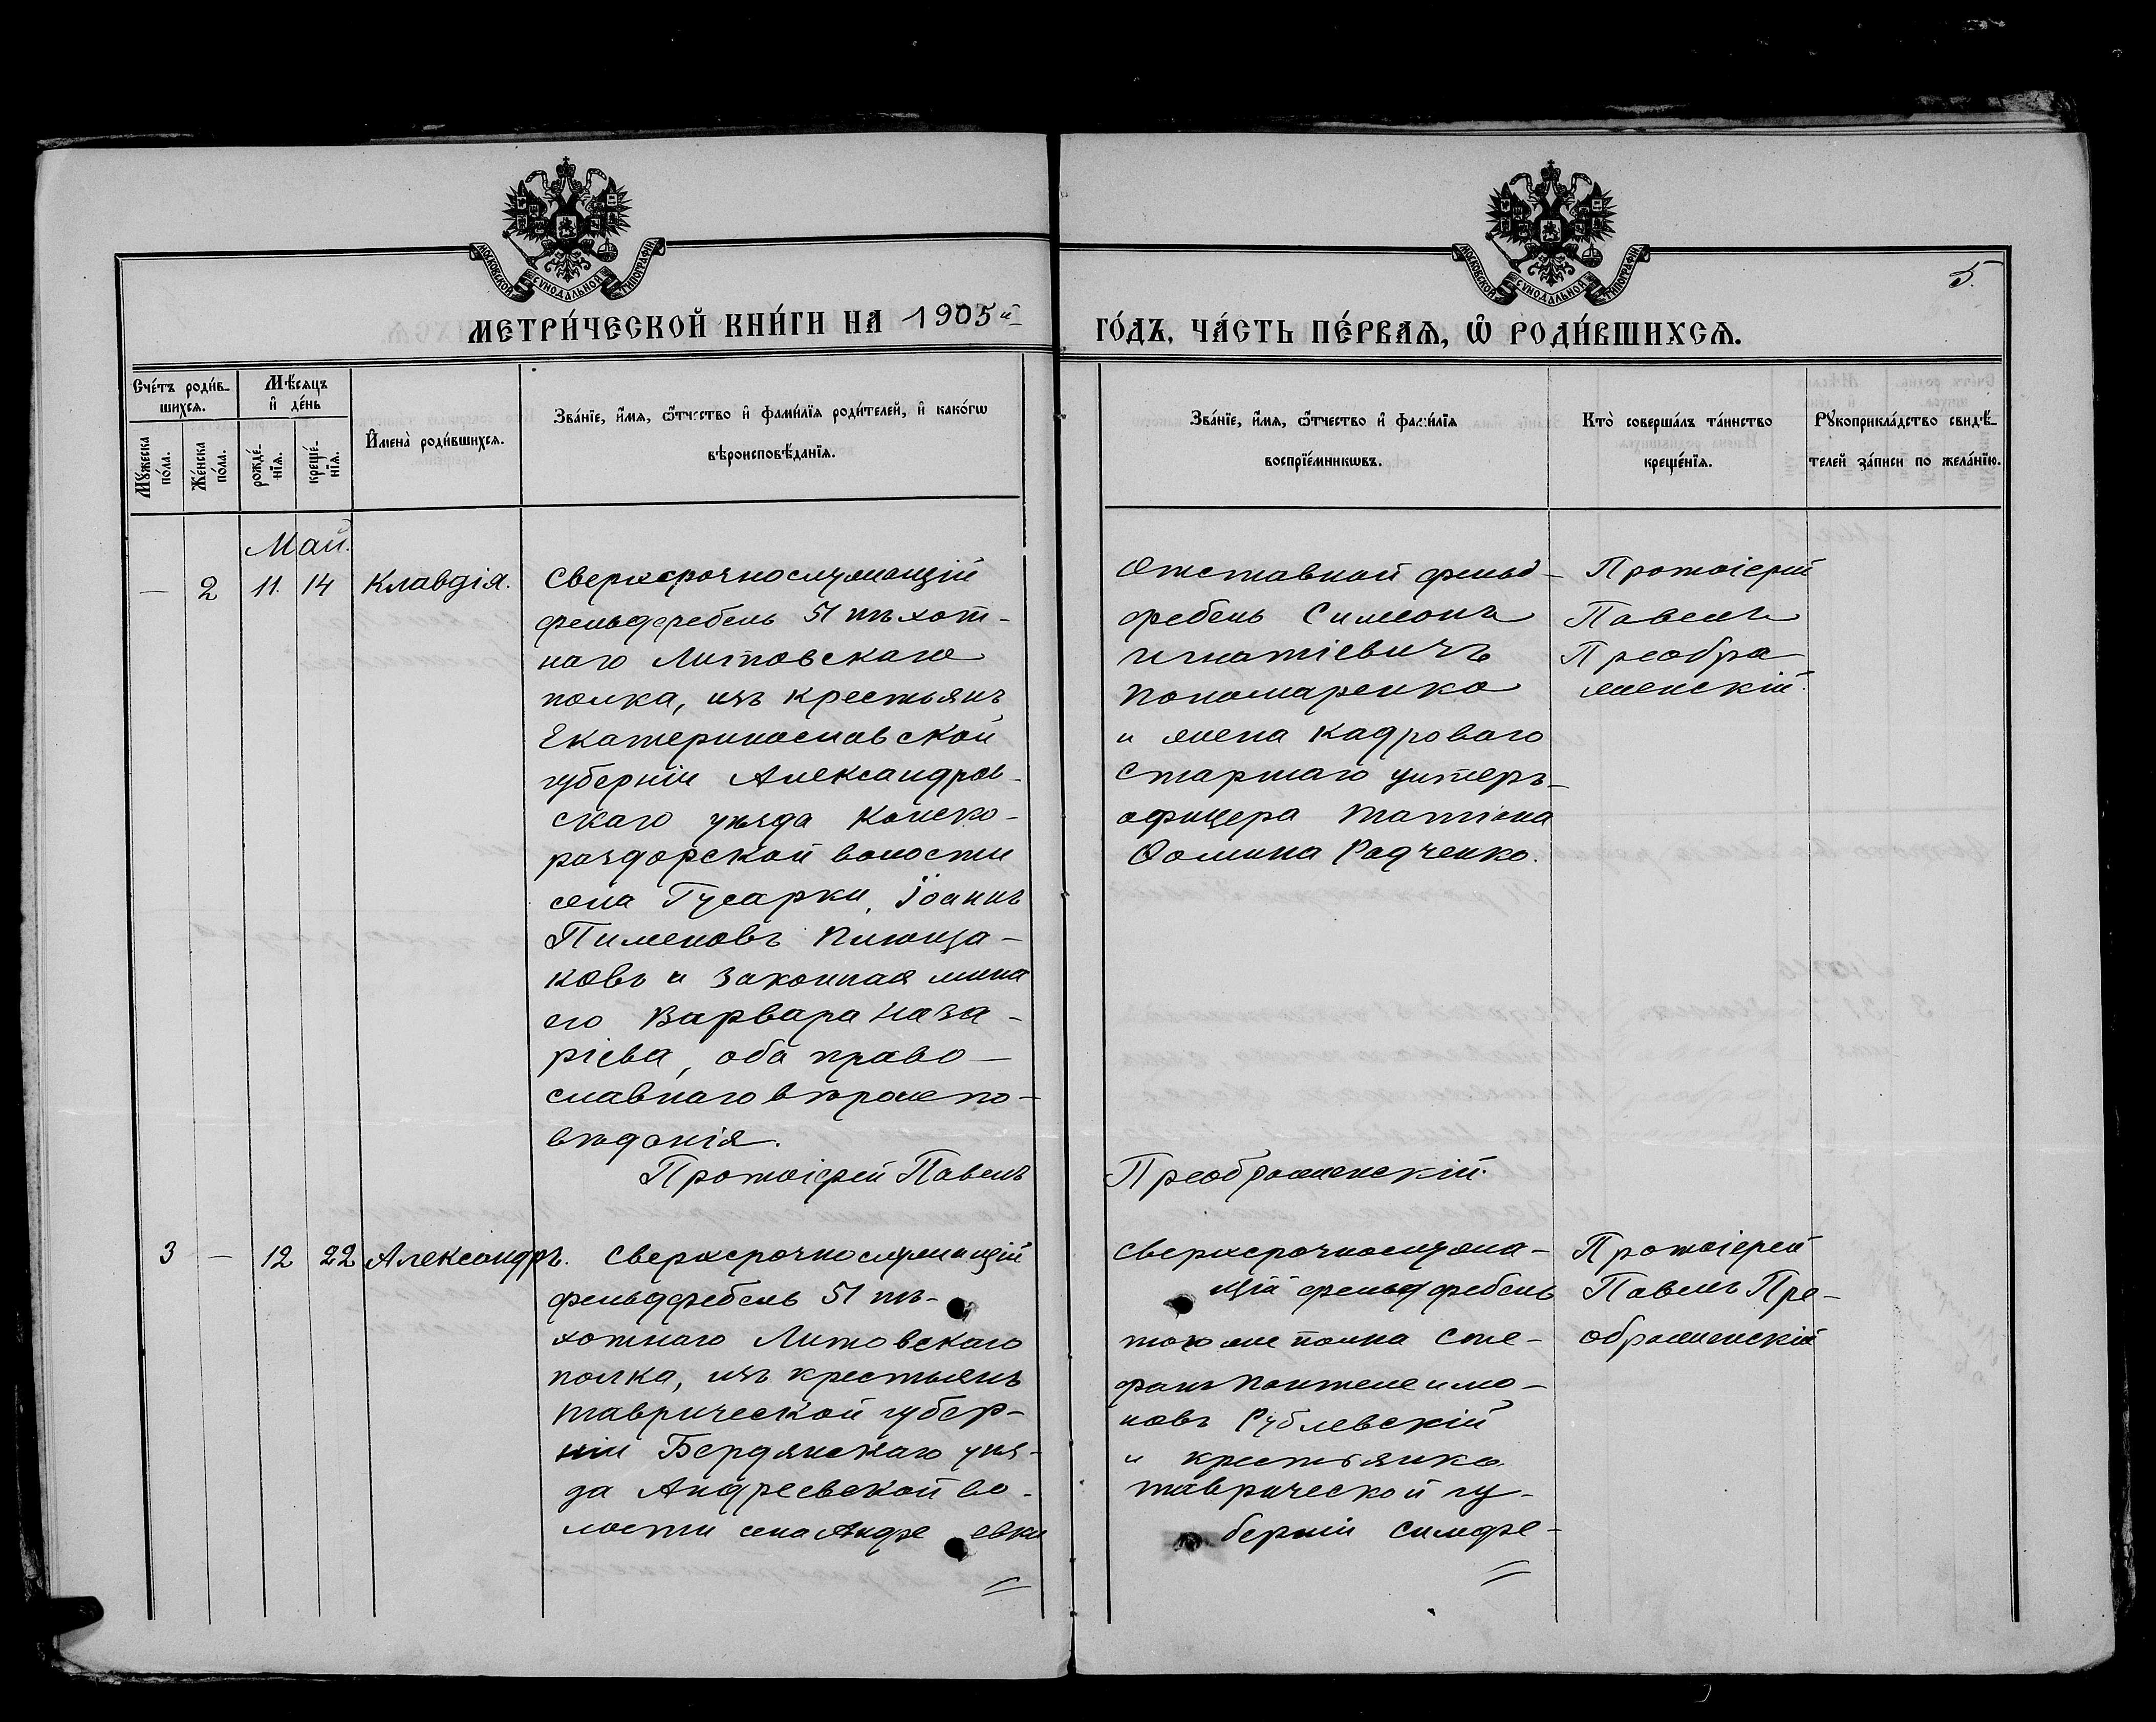 МОСКОВСКОЙ СѴНОДАЛЬНОЙ ТИПОГРАФІИ
МОСКОВСКОЙ СѴНОДАЛЬНОЙ ТИПОГРАФІИ
5.
МЕТРИ́ЧЕСКОЙ КНИ́ГИ НА 1905й
ГО́ДЪ, ЧА́СТЬ ПЕ́РВАѦ, Ѡ҆ РОДИ́ВШИХСѦ.
Сче́тъ роди́в-
шихсѧ.
Мѣ́сѧцъ
и҆ де́нь
Мꙋ́жеска
по́ла.
Же́нска
по́ла.
рожде́-
нїѧ.
креще́-
нїѧ.
И҆мена̀ роди́вшихсѧ.
Зва́нїе, и҆́мѧ, ѻ҆́тчество и҆ фами́лїѧ роди́телей, и҆ како́гѡ
вѣроисповѣ́данїѧ.
Зва́нїе, и҆́мѧ, ѻ҆́тчество и҆ фами́лїѧ
воспрїе́мникѡвъ.
Кто̀ соверша́лъ та́инство
креще́нїѧ.
Рꙋкоприкла́дство свидѣ́-
телей за́писи по жела́нїю.
Май.
— 2 11. 14 Клавдія.
Сверхсрочнослужащій
фельдфебель 51 пѣхот-
наго Литовскаго
полка, изъ крестьянъ
Екатеринославской
губерніи Александров-
скаго уѣзда Конско-
раздорской волости
села Гусарки, Іоаннъ
Пименовъ
ковъ и законная жена
его Варвара Наза-
ріева, оба право-
славнаго вѣроиспо-
вѣданія.
Протоіерей Павелъ
Отставной фельд-
фебель Симеонъ
Игнатіевичъ
Пономаренко
и жена кадроваго
старшаго унтеръ-
офицера Татіана
Ѳомина Радченко.
Преображенскій.
Протоіерей
Павелъ
Преобра
женскій.
3 — 12 22 Александръ.
Сверхсрочнослужащій
фельдфебель 51 пѣ-
хотнаго Литовскаго
полка, изъ крестьянъ
Таврической губер-
ніи Бердянскаго уѣз-
да Андреевской во-
лости села Андреевки
=
Сверхсрочнослужа-
щій фельдфебель
того же полка Сте-
фанъ Пантелеимо-
новъ Рублевскій
и крестьянка
Таврической гу-
берніи Симфе-
=
Протоіерей
Павелъ Пре-
ображенскій